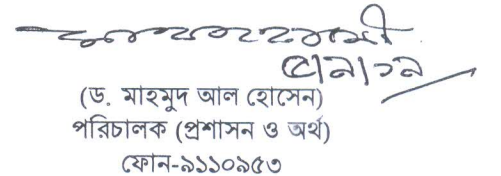 (ড. মাহমুদ আল হোসেন)
পরিচালক (প্রশাসন ও অর্থ)
ফোন-৯১১০৯৫৩